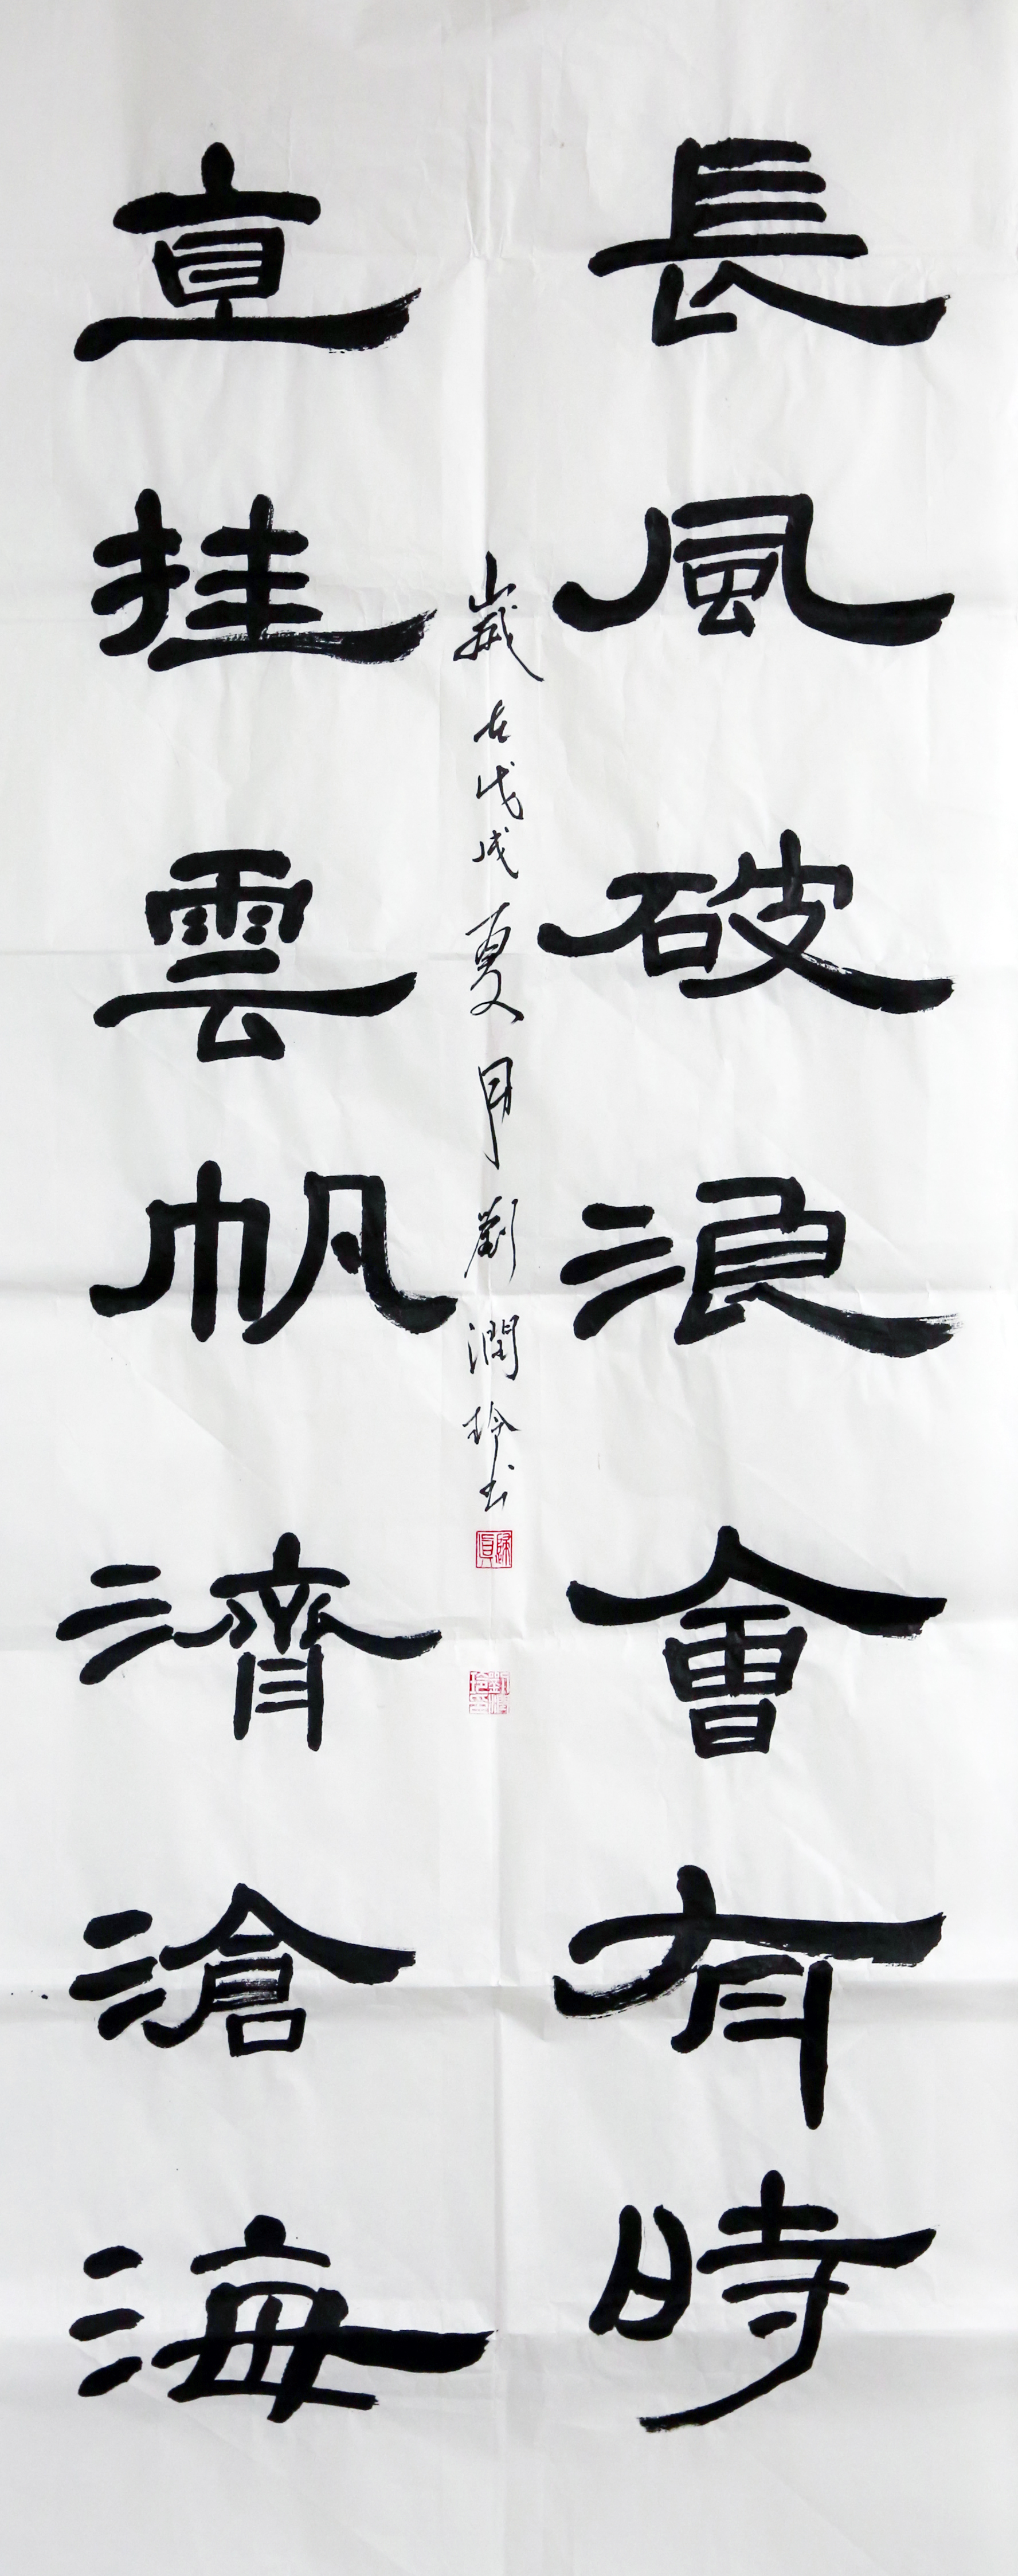 長風破浪會有時
直挂雲帆濟滄海
歲在戊戌夏月劉潤玲书